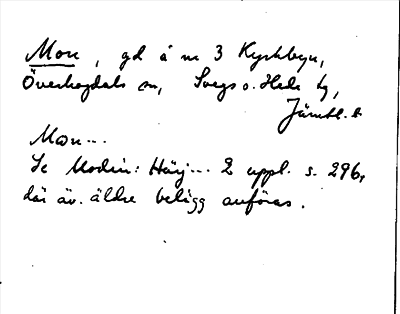 Mon, gd å nr 3 Kyrkbyn,
Överhogdals sn, Svegs o. Hede tg,
Jämtl. l.
Mon...
Se Modin: Härj... 2 uppl. s. 296,
där äv. äldre belägg anföras.